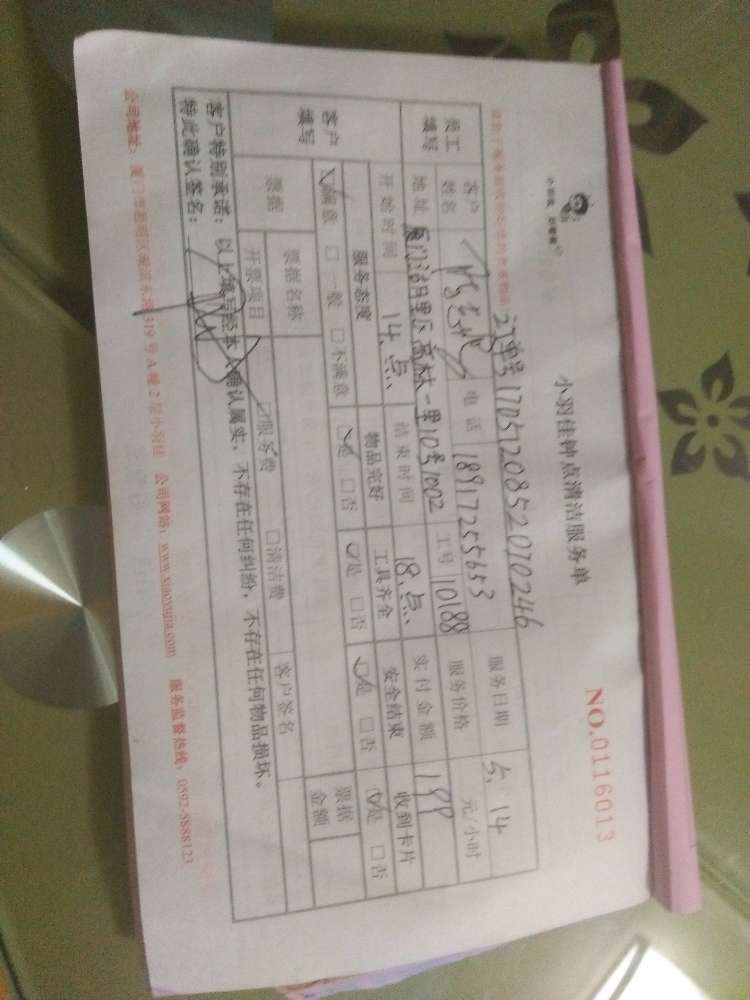 小羽佳 好嘟嘟
小羽佳钟点清洁服务单
NO.0116013
订单号 1705120852010246
员工填写 客户姓名 电话 18917255653 服务日期 5.14
地址 厦门湖里区高林一里10号1002 工号 10188 服务价格 元/小时
开始时间 14.点 结束时间 18.点 实付金额 199
客户填写 服务态度 物品完好 工具齐全 安全结束 收到卡片
☑满意 □一般 □不满意 ☑是 □否 ☑是 □否 ☑是 □否 ☑是 □否
票据 票据名称 票据金额
开票项目 □服务费 □清洁费 客户签名
客户特别承诺：以上填写经本人确认属实，不存在任何纠纷，不存在任何物品损坏。
特此确认签名：
公司地址：厦门市思明区 319号A幢2层小羽佳 公司网站：www.xiaoyujia.com 服务监督热线：0592-5888123